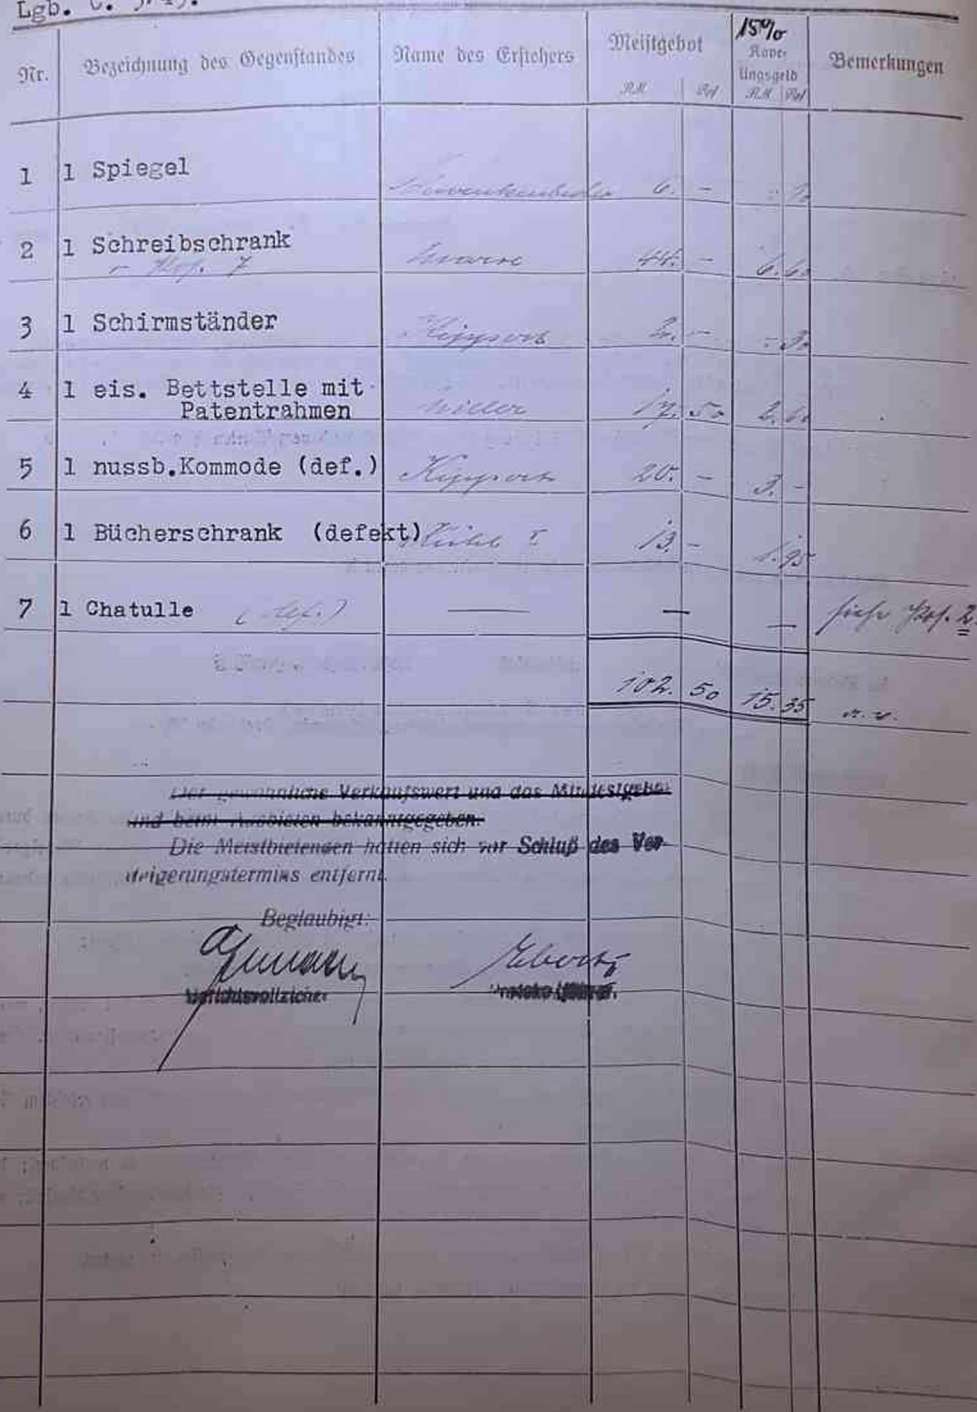 Lgb. C.
Nr. Bezeichnung des Gegenstandes Name des Erstehers Meistgebot 15% Kave- lingsgeld Bemerkungen
RM Pf RM Pf
1 1 Spiegel 6. -
2 1 Schreibschrank 44. - 6.60
Pos. 7
3 1 Schirmständer Kippert 2. - -.30
4 1 eis. Bettstelle mit
Patentrahmen Miller 17.50 2.60
5 1 nussb.Kommode (def.) Kippert 20. - 3. -
6 1 Bücherschrank (defekt) I 13. - 1.95
7 1 Chatulle (def.) — — — siehe Pos. 2.
102. 50 15. 35
Der gewöhnliche Verkaufswert und das Mindestgebot
sind beim Ausbieten bekanntgegeben.
Die Meistbietenden hatten sich vor Schluß des Ver-
steigerungstermins entfernt.
Beglaubigt:
Gerichtsvollzieher